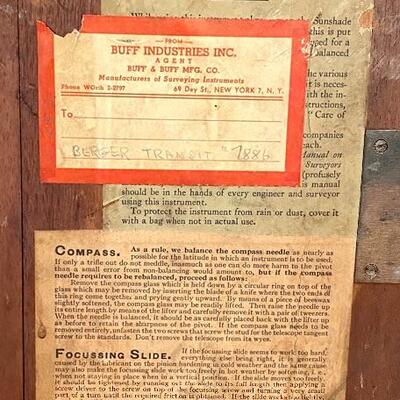 Sunshade
FROM
BUFF INDUSTRIES INC.
AGENT
BUFF & BUFF MFG. CO.
Manufacturers of Surveying Instruments
Phone WOrth 2-2797 69 Dey St., NEW YORK 7, N. Y.
To
BERGER TRANSIT # 7886
to put
for a
balanced
the various
it is neces-
with the in-
structions,
" Care of
companies
each.
Manual on
Surveyors
(profusely
this manual
should be in the hands of every engineer and surveyor
using this instrument.
To protect the instrument from rain or dust, cover it
with a bag when not in actual use.
COMPASS. As a rule, we balance the compass needle as nearly as
possible for the latitude in which an instrument is to be used.
If only a trifle out do not meddle, inasmuch as one can do more harm to the pivot
than a small error from non-balancing would amount to, but if the compass
needle requires to be rebalanced, proceed as follows:
Remove the compass glass which is held down by a circular ring on top of the
glass which may be removed by inserting the blade of a knife where the two ends of
this ring come together and prying gently upward. By means of a piece of beeswax
slightly softened, the compass glass may be readily lifted. Then raise the needle up
its entire length by means of the lifter and carefully remove it with a pair of tweezers.
When the needle is balanced, it should be as carefully placed back with the lifter up
as before to retain the sharpness of the pivot. If the compass glass needs to be
removed entirely, unfasten the two screws that screw the stud for the telescope tangent
screw to the standards. Don't remove the telescope from its wyes.
FOCUSSING SLIDE. If the focussing slide seems to work too hard,
everything else being right, it is generally
caused by the lubricant on the pinion hardening in cold weather and the same cause
may also make the focussing slide work too freely in hot weather by softening, i.e.,
when not staying in place when in a vertical position. If the slide moves too freely,
it should be tightened by running out the slide to its full length then applying a
screw driver to the screw on top of the focussing screw and turning it very small
part of a turn until the required friction is obtained. If the slide works too hard